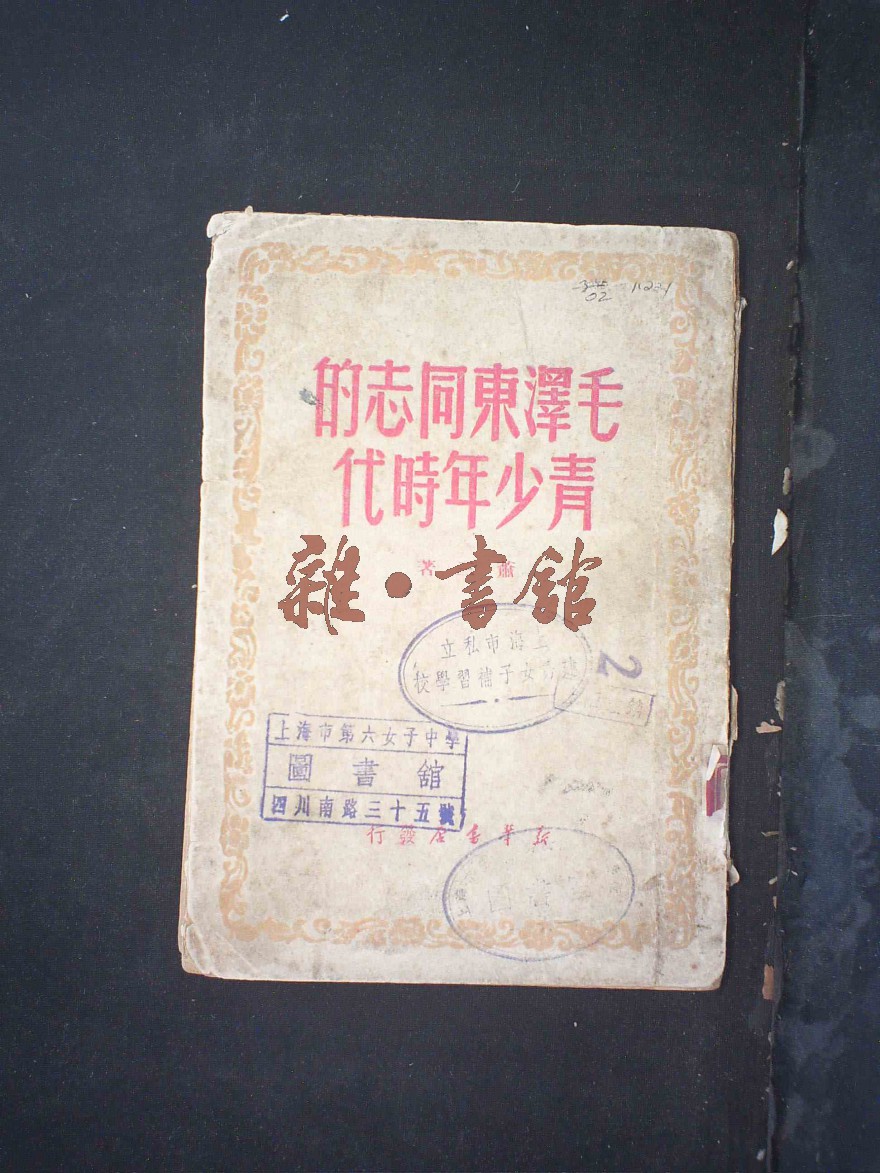 毛澤東同志的
青少年時代
蕭 著
雜·書館
上海市私立
女子補習學校
2
上海市第六女子中學
圖書舘
四川南路三十五號
新華書店發行
圖書